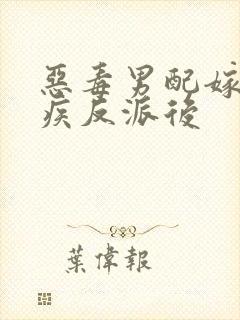 惡毒男配嫁
疾反派後
葉偉報